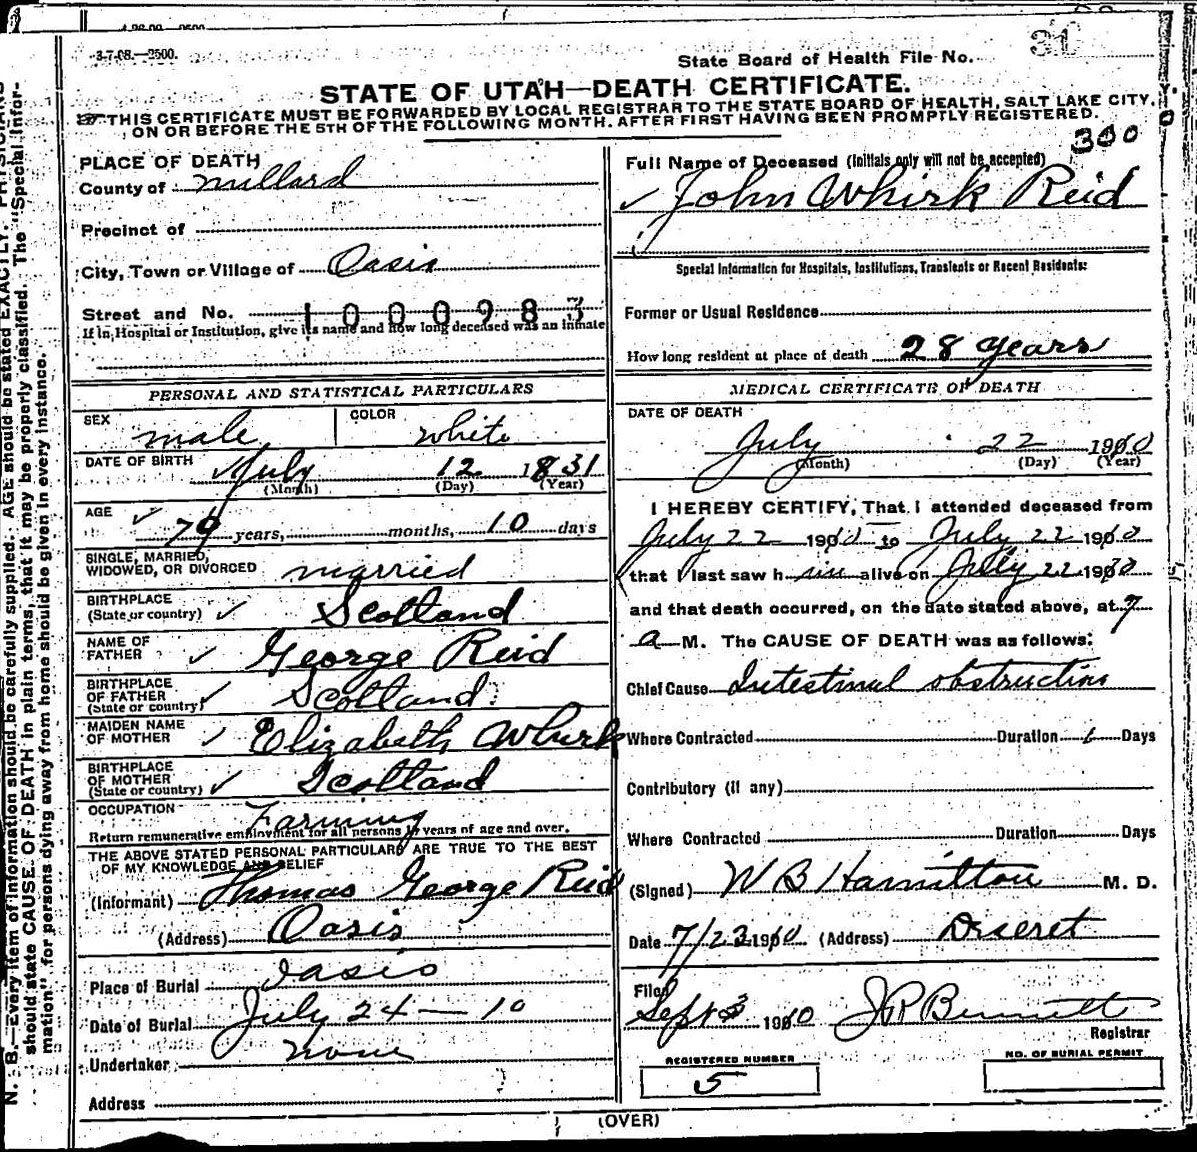 3-7-08.—2500.
State Board of Health File No. 31
STATE OF UTAH—DEATH CERTIFICATE.
THIS CERTIFICATE MUST BE FORWARDED BY LOCAL REGISTRAR TO THE STATE BOARD OF HEALTH, SALT LAKE CITY,
ON OR BEFORE THE 5TH OF THE FOLLOWING MONTH. AFTER FIRST HAVING BEEN PROMPTLY REGISTERED.
300
PLACE OF DEATH
County of Millard
Precinct of
City, Town or Village of Oasis
Street and No. 1000983
If in Hospital or Institution, give its name and how long deceased was an inmate
Full Name of Deceased (Initials only will not be accepted)
John Whirk Reid
Special Information for Hospitals, Institutions, Transients or Recent Residents:
Former or Usual Residence
How long resident at place of death 28 years
PERSONAL AND STATISTICAL PARTICULARS
SEX male COLOR white
DATE OF BIRTH July 12 1831
(Month) (Day) (Year)
AGE 79 years, months, 10 days
SINGLE, MARRIED,
WIDOWED, OR DIVORCED married
BIRTHPLACE
(State or country) Scotland
NAME OF
FATHER George Reid
BIRTHPLACE
OF FATHER
(State or country) Scotland
MAIDEN NAME
OF MOTHER Elizabeth Whirk
BIRTHPLACE
OF MOTHER
(State or country) Scotland
OCCUPATION Farming
Return remunerative employment for all persons 10 years of age and over.
THE ABOVE STATED PERSONAL PARTICULARS ARE TRUE TO THE BEST
OF MY KNOWLEDGE AND BELIEF
(Informant) Thomas George Reid
(Address) Oasis
Place of Burial Oasis
Date of Burial July 24 — 10
Undertaker none
Address
MEDICAL CERTIFICATE OF DEATH
DATE OF DEATH
July 22 1910
(Month) (Day) (Year)
I HEREBY CERTIFY, That I attended deceased from
July 22 1910 to July 22 1910
that I last saw him alive on July 22 1910
and that death occurred, on the date stated above, at 7
a M. The CAUSE OF DEATH was as follows:
Chief Cause Intestinal obstruction
Where Contracted Duration Days
Contributory (if any)
Where Contracted Duration Days
(Signed) W B Hamilton M. D.
Date 7/23 1910 (Address) Deseret
Filed
Sept 3 1910 J R Bennett
Registrar
REGISTERED NUMBER
5
NO. OF BURIAL PERMIT
(OVER)
N. B.—Every item of information should be carefully supplied. AGE should be stated EXACTLY. PHYSICIANS
should state CAUSE OF DEATH in plain terms, that it may be properly classified. The "Special Infor-
mation" for persons dying away from home should be given in every instance.